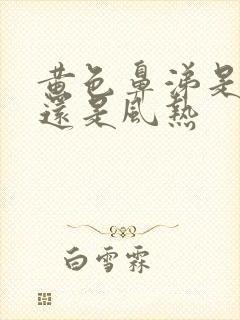 黃色鼻涕是
還是風熱
白雪霖